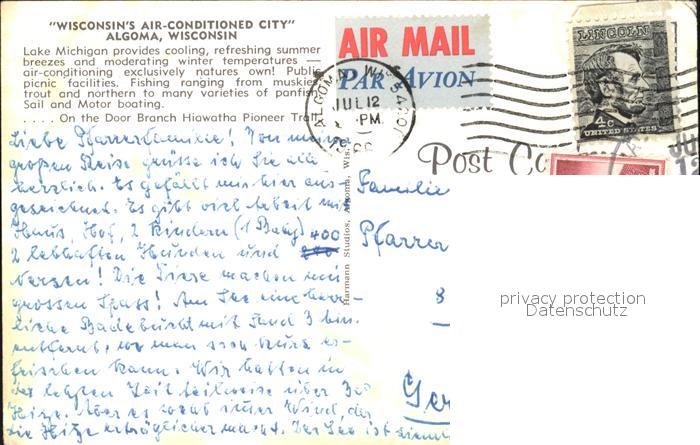 "WISCONSIN'S AIR-CONDITIONED CITY"
ALGOMA, WISCONSIN
Lake Michigan provides cooling, refreshing summer
breezes and moderating winter temperatures —
air-conditioning exclusively natures own! Public
picnic facilities. Fishing ranging from muskies,
trout and northern to many varieties of panfish
Sail and Motor boating.
. . . . On the Door Branch Hiawatha Pioneer Trail
AIR MAIL
PAR AVION
ALGOMA, WIS.
JUL 12
PM
LINCOLN
4c
UNITED STATES
Post
Harmann Studios, Algoma, Wis.
Liebe Pfarrerfamilie! Von meiner
großen Reise grüsse ich Sie alle
herzlich. Es gefällt mir hier aus-
gezeichnet. Es gibt viel Arbeit mit
Haus, Hof, 2 Kindern (1 Baby)
2 lebhaften Hunden und 400
Nerzen! Die Tiere machen mir
grossen Spass! Am See eine herr-
liche Badebucht mit Sand 3 km
entfernt, wo man sich kurz er-
frischen kann. Wir hatten in
der letzten Zeit teilweise über
Hitze. Aber es weht immer Wind, der
die Hitze erträglicher macht. Der See ist
Familie
Pfarrer
8
Ger
privacy protection
Datenschutz